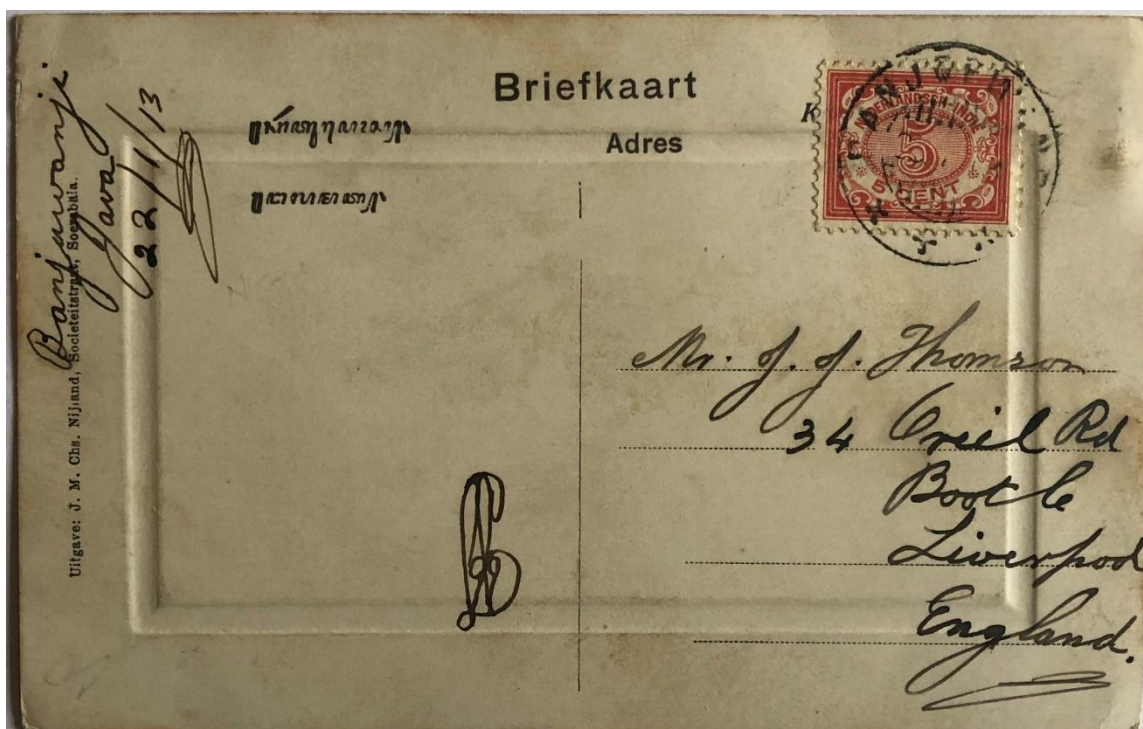 Banjuwanji
Java
22/11/13
Uitgave: J. M. Chs. Nijland, Societeitstraat, Soerabaia.
Briefkaart
Adres
NEDERLANDSCH-INDIE
5
5 CENT
Mr. J. J. Thomson
34 Oriel Rd
Bootle
Liverpool
England.